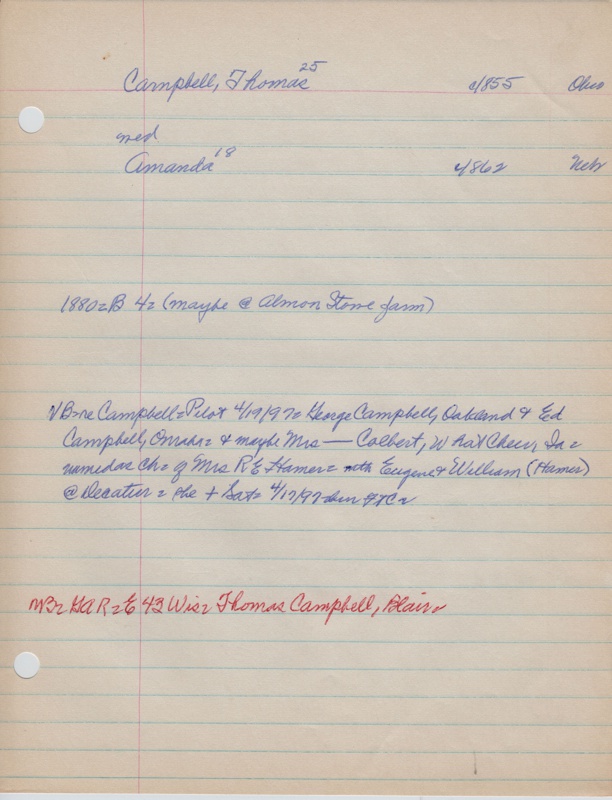 Campbell, Thomas 25 c/855 Ohio
med
Amanda 18 c/862 Neb
1880=B 4= (maybe @ Almon Stowe farm)
VB=re Campbell=Pilot 4/19/97= George Campbell, Oakland & Ed
Campbell, Omaha= & maybe Mrs — Colbert, What Cheer, Ia=
named as ch= of Mrs R E Hamer= with Eugene & William (Hamer)
@ Decatur= she + Sat= 4/17/97
NB= GAR= E 43 Wis= Thomas Campbell, Blair=